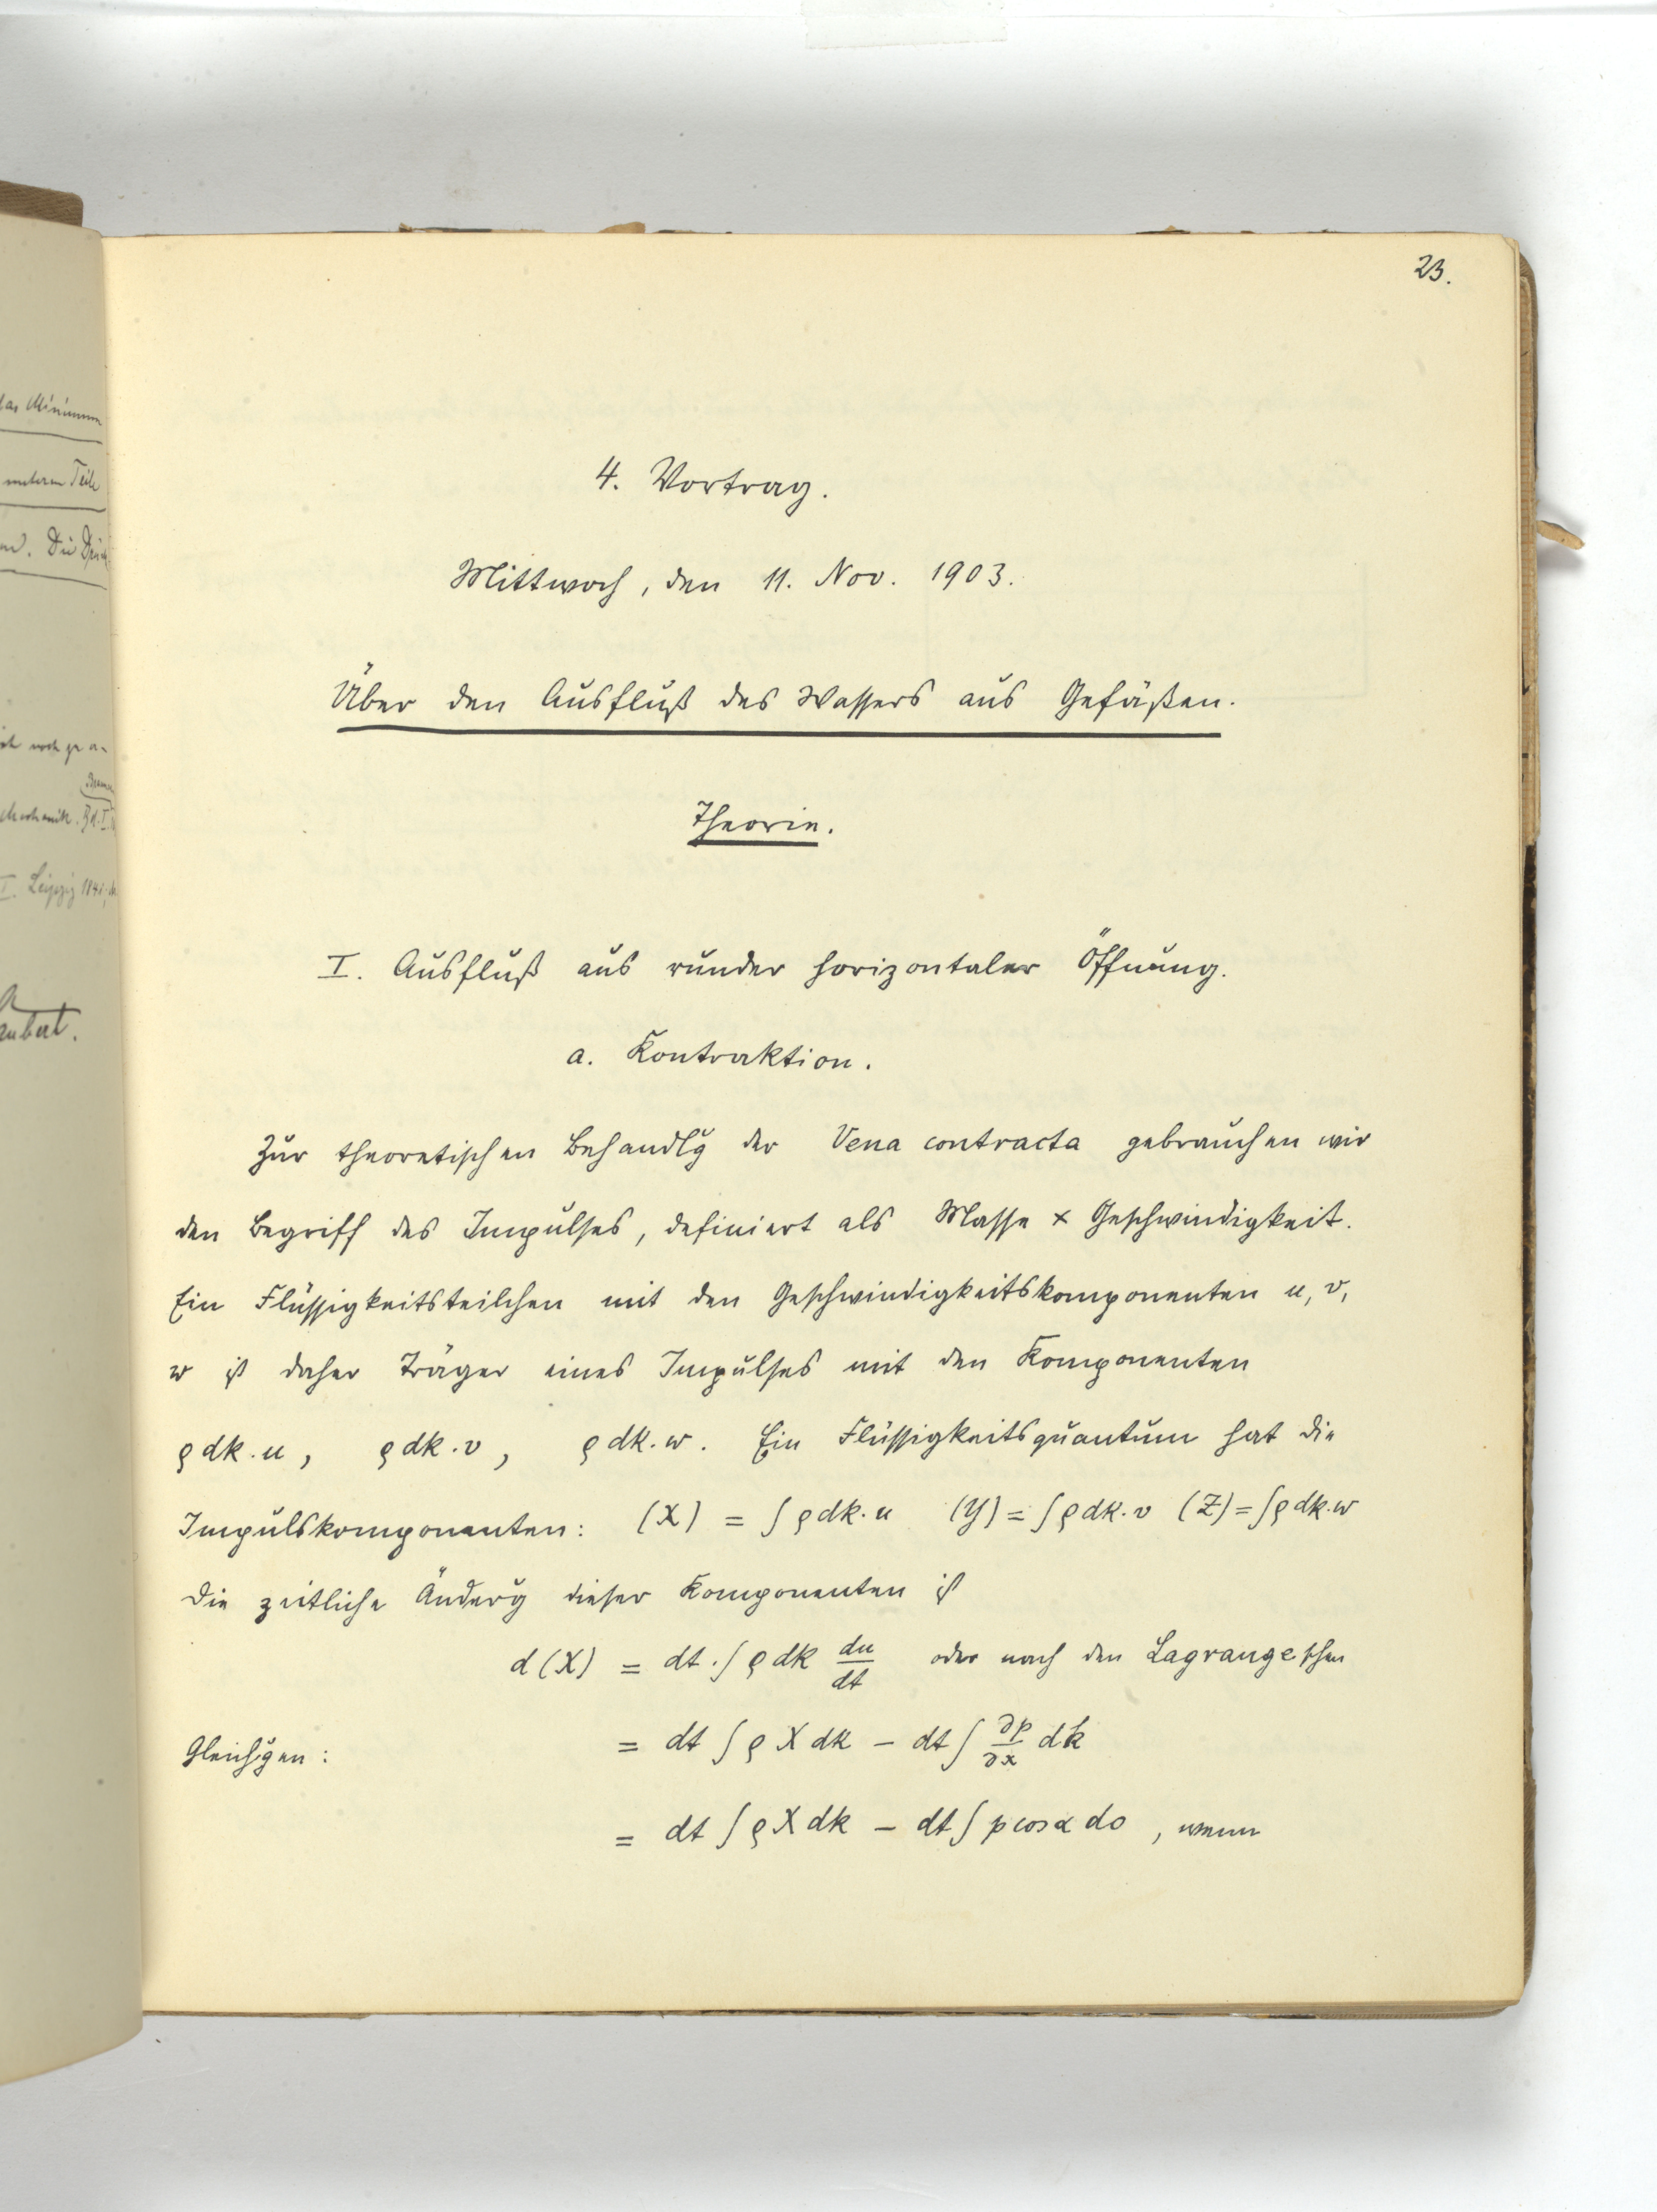 23.
4. Vortrag.
Mittwoch, den 11. Nov. 1903.
Über den Ausfluß des Wassers aus Gefäßen.
Theorie.
I. Ausfluß aus runder horizontaler Öffnung.
a. Kontraktion.
Zur theoretischen Behandlg der Vena contracta gebrauchen wir
den Begriff des Impulses, definiert als Masse × Geschwindigkeit.
Ein Flüssigkeitsteilchen mit den Geschwindigkeitskomponenten u, v,
w ist daher Träger eines Impulses mit den Komponenten
ρ dk. u, ρ dk. v, ρ dk. w. Ein Flüssigkeitsquantum hat die
Impulskomponenten: (X) = ∫ ρ dk. u (Y) = ∫ ρ dk. v (Z) = ∫ ρ dk. w
Die zeitliche Änderg dieser Komponenten ist
d(X) = dt. ∫ ρ dk du/dt oder nach den Lagrangeschen
Gleichgen: = dt ∫ ρ X dk − dt ∫ ∂p/∂x dk
= dt ∫ ρ X dk − dt ∫ p cos α do, wenn
das Minimum
unteren Teile
Die Drück
noch
Mechanik. Bd. I.
I. Leipzig